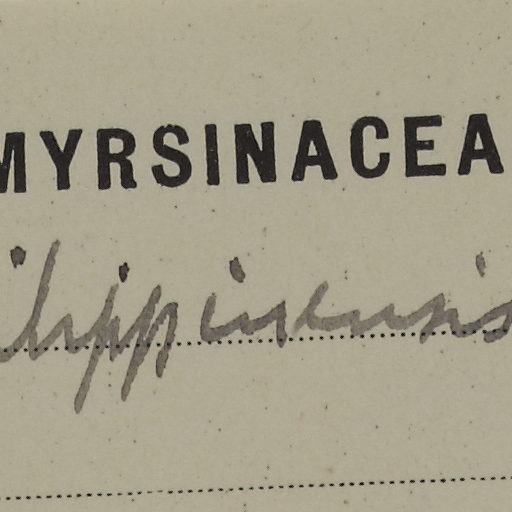 MYRSINACEA
ilippinensis